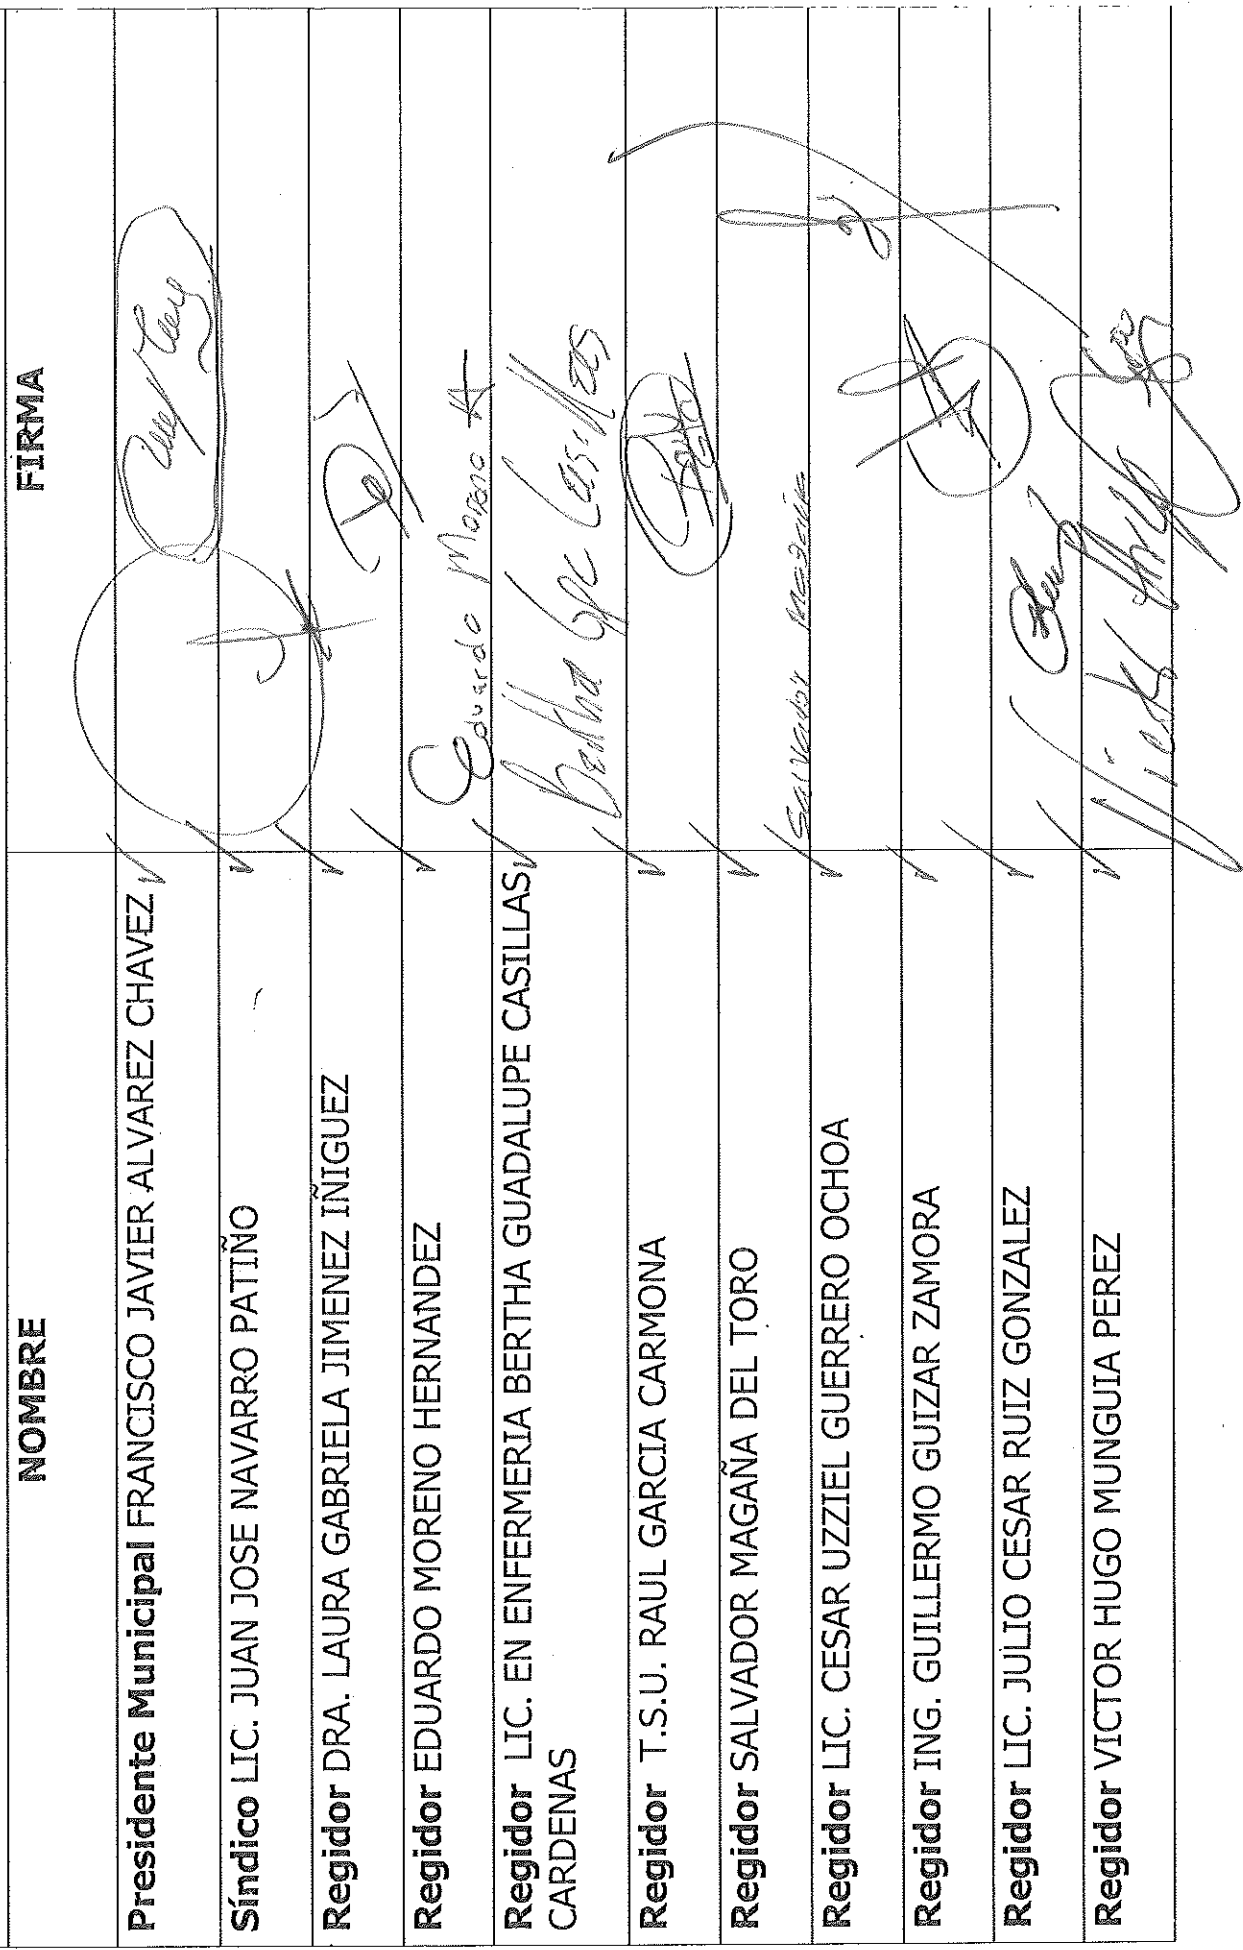 NOMBRE FIRMA
Presidente Municipal FRANCISCO JAVIER ALVAREZ CHAVEZ
Síndico LIC. JUAN JOSE NAVARRO PATIÑO
Regidor DRA. LAURA GABRIELA JIMENEZ IÑIGUEZ
Regidor EDUARDO MORENO HERNANDEZ Eduardo Moreno H
Regidor LIC. EN ENFERMERIA BERTHA GUADALUPE CASILLAS Bertha Gpe Casillas
CARDENAS
Regidor T.S.U. RAUL GARCIA CARMONA
Regidor SALVADOR MAGAÑA DEL TORO Salvador Magaña
Regidor LIC. CESAR UZZIEL GUERRERO OCHOA
Regidor ING. GUILLERMO GUIZAR ZAMORA
Regidor LIC. JULIO CESAR RUIZ GONZALEZ
Regidor VICTOR HUGO MUNGUIA PEREZ